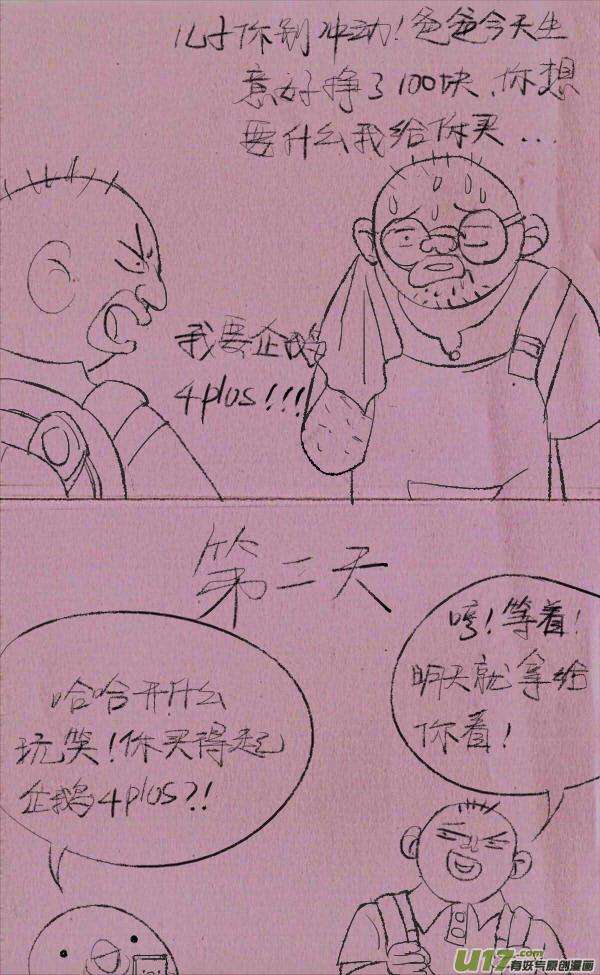 儿子你别冲动!爸爸今天生
意好挣了100块、你想
要什么我给你买...
我要企鹅
4plus!!!
第二天
哼!等着!
明天就拿给
你看!
哈哈开什么
玩笑!你买得起
企鹅4plus?!
U17.com
有妖气原创漫画